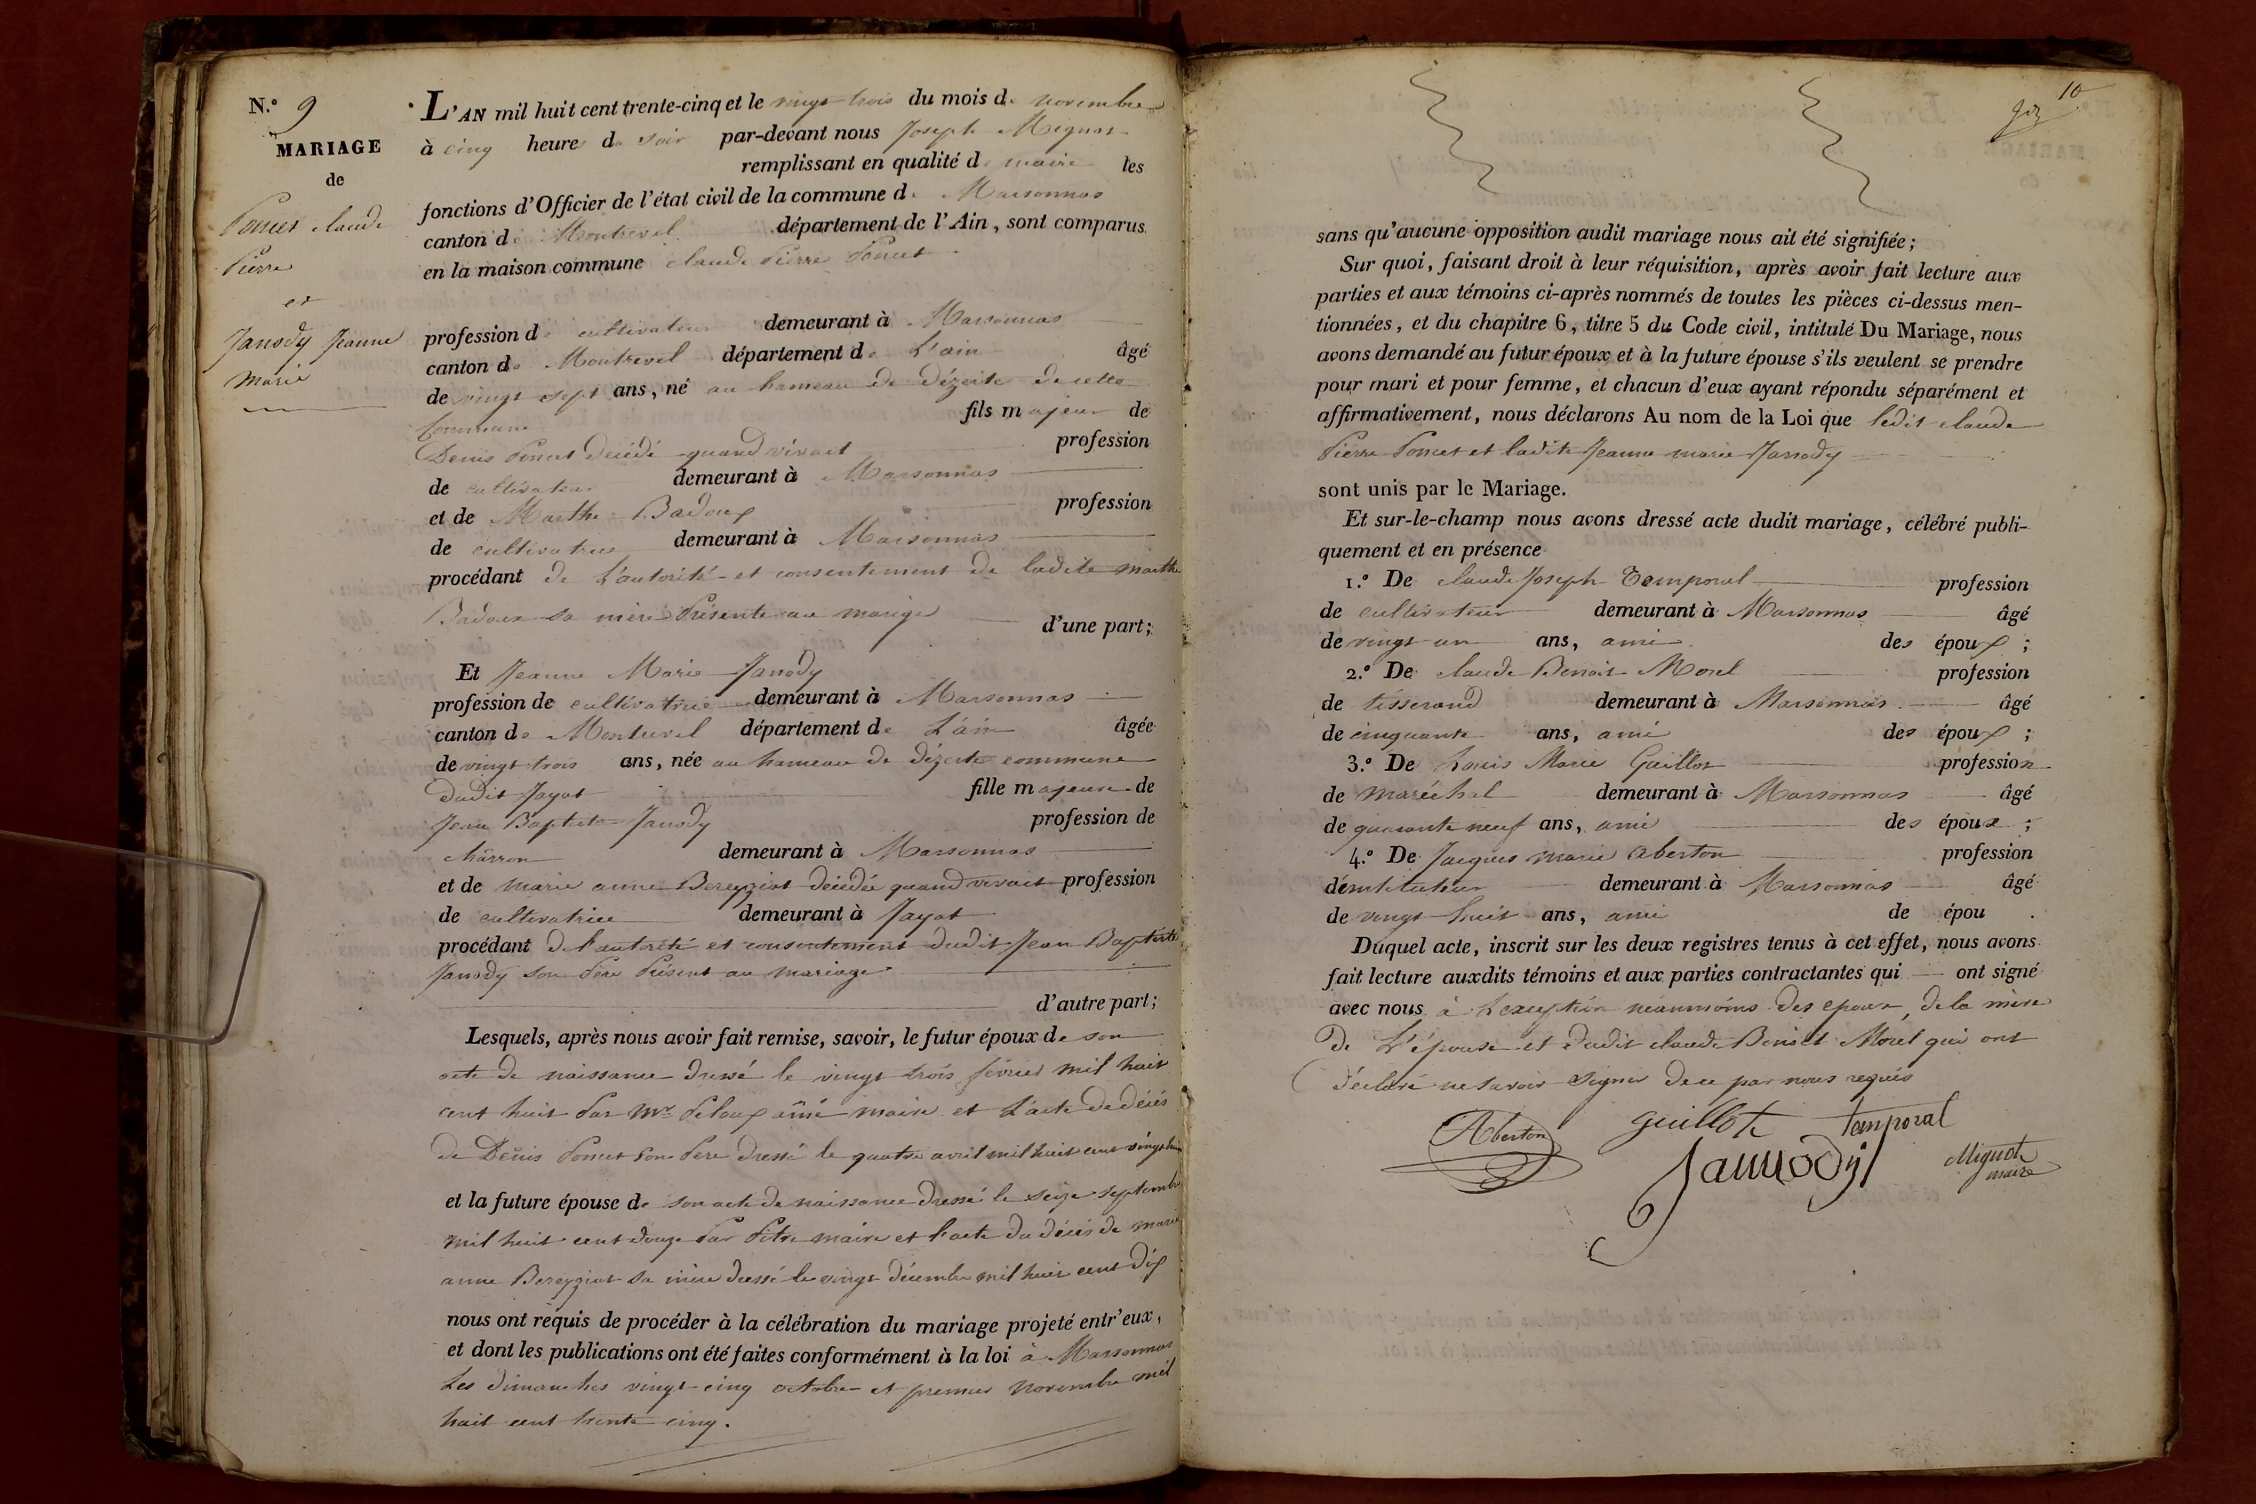 N.° 9
MARIAGE
de
Poncet claude
Pierre
et
Janody Jeanne
marie
L'AN mil huit cent trente-cinq et le vingt trois du mois de novembre
à cinq heures du soir par-devant nous Joseph Mignot
remplissant en qualité de maire les
fonctions d'Officier de l'état civil de la commune de Marsonnas
canton de Montrevel département de l'Ain, sont comparus
en la maison commune claude Pierre Poncet
profession de cultivateur demeurant à Marsonnas
canton de Montrevel département de L'ain âgé
de vingt sept ans, né au hameau de dézerte de cette
Commune fils majeur de
Denis Poncet décédé quand vivait profession
de cultivateur demeurant à Marsonnas
et de Marthe Badoux profession
de cultivatrice demeurant à Marsonnas
procédant de L'autorité et consentement de ladite marthe
Badoux sa mère Présente au mariage d'une part;
Et Jeanne Marie Janody
profession de cultivatrice demeurant à Marsonnas
canton de Montrevel département de L'ain âgée
de vingt trois ans, née au hameau de dézerte commune
dudit Jayat fille majeure de
Jean Baptiste Janody profession de
charron demeurant à Marsonnas
et de marie anne Bereyziat décédée quand vivait profession
de cultivatrice demeurant à Jayat
procédant de l'autorité et consentement dudit Jean Baptiste
Janody son Père Présent au mariage
d'autre part;
Lesquels, après nous avoir fait remise, savoir, le futur époux de son
acte de naissance dressé le vingt trois février mil huit
cent huit Par Mr Peloux aîné maire et L'acte de décés
de Denis Poncet son Père dressé le quatre avril mil huit cent vingt
et la future épouse de son acte de naissance dressé le seize septembre
mil huit cent douze Par maire et l'acte du décès de marie
anne Bereyziat sa mère dressé le vingt décembre mil huit cent dix
nous ont requis de procéder à la célébration du mariage projeté entr'eux,
et dont les publications ont été faites conformément à la loi à Marsonnas
Les dimanches vingt cinq octobre et premier novembre mil
huit cent trente cinq.
10
sans qu'aucune opposition audit mariage nous ait été signifiée;
Sur quoi, faisant droit à leur réquisition, après avoir fait lecture aux
parties et aux témoins ci-après nommés de toutes les pièces ci-dessus men-
tionnées, et du chapitre 6, titre 5 du Code civil, intitulé Du Mariage, nous
avons demandé au futur époux et à la future épouse s'ils veulent se prendre
pour mari et pour femme, et chacun d'eux ayant répondu séparément et
affirmativement, nous déclarons Au nom de la Loi que ledit claude
Pierre Poncet et ladite Jeanne marie Janody
sont unis par le Mariage.
Et sur-le-champ nous avons dressé acte dudit mariage, célébré publi-
quement et en présence
1.° De claude Joseph Temporal profession
de cultivateur demeurant à Marsonnas âgé
de vingt un ans, ami des époux;
2.° De claude Benoit Morel profession
de tisserand demeurant à Marsonnas âgé
de cinquante ans, ami des époux;
3.° De Louis Marie Guillot profession
de maréchal demeurant à Marsonnas âgé
de quarante neuf ans, ami des époux;
4.° De Jacques marie Aberton profession
d'instituteur demeurant à Marsonnas âgé
de vingt huit ans, ami de épou .
Duquel acte, inscrit sur les deux registres tenus à cet effet, nous avons
fait lecture auxdits témoins et aux parties contractantes qui ont signé
avec nous à L'exception néanmoins des epoux, de la mère
de L'épouse et dudit claude Benoit Morel qui ont
déclaré ne savoir signer de ce par nous requis
Aberton Guillot temporal
Jannody Mignot
maire